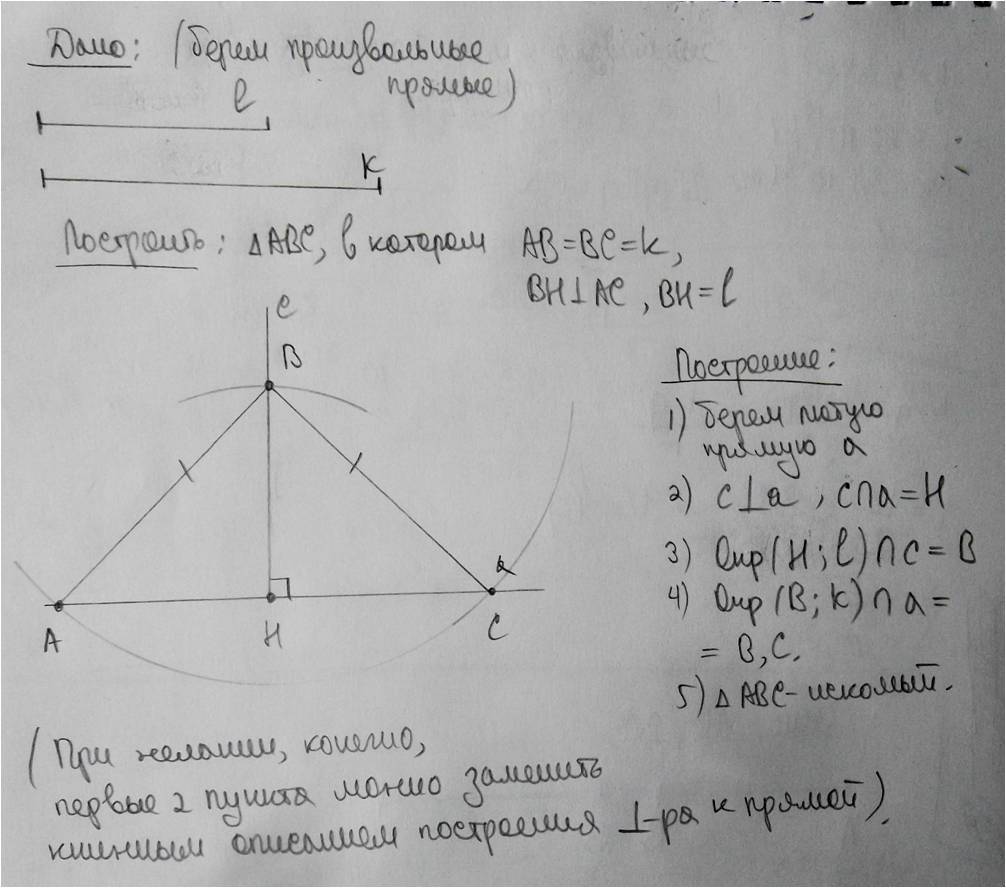 Дано: (берем произвольные
прямые)
l
k
Построить: ΔABC, в котором AB=BC=k,
BH⊥AC, BH=l
c
B
Построение:
1) берем любую
прямую a
2) c⊥a, c∩a=H
3) Окр(H; l)∩c=B
4) Окр(B; k)∩a=
= B,C.
5) ΔABC-искомый.
a
A
H
C
(При желании, конечно,
первые 2 пункта можно заменить
книжным описанием построения ⊥-ра к прямой).